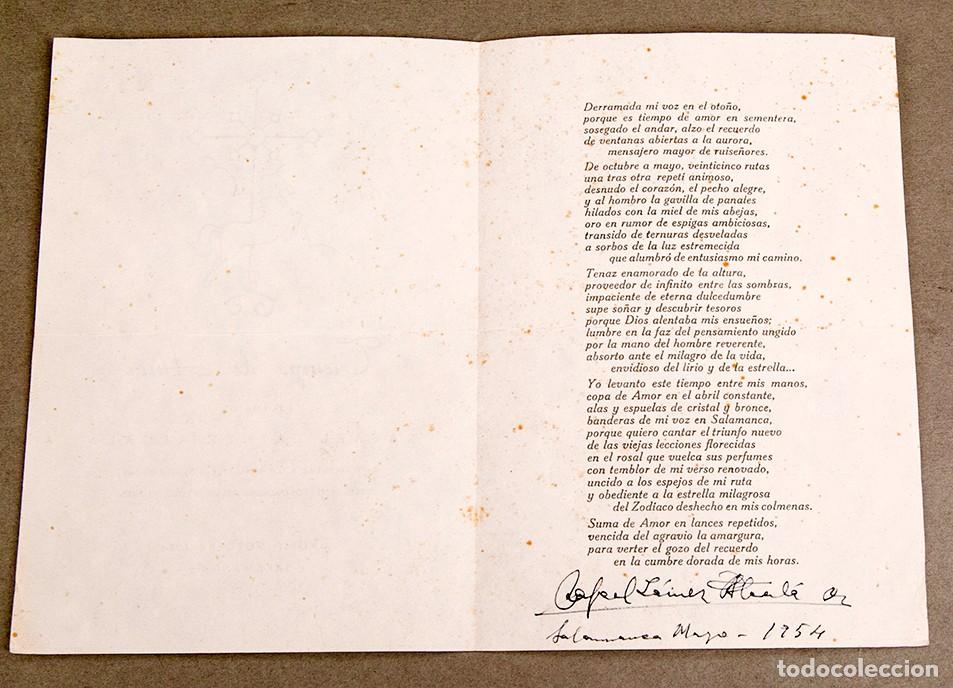 Derramada mi voz en el otoño,
porque es tiempo de amor en sementera,
sosegado el andar, alzo el recuerdo
de ventanas abiertas a la aurora,
mensajero mayor de ruiseñores.
De octubre a mayo, veinticinco rutas
una tras otra repetí animoso,
desnudo el corazón, el pecho alegre,
y al hombro la gavilla de panales
hilados con la miel de mis abejas,
oro en rumor de espigas ambiciosas,
transido de ternuras desveladas
a sorbos de la luz estremecida
que alumbró de entusiasmo mi camino.
Tenaz enamorado de la altura,
proveedor de infinito entre las sombras,
impaciente de eterna dulcedumbre
supe soñar y descubrir tesoros
porque Dios alentaba mis ensueños;
lumbre en la faz del pensamiento ungido
por la mano del hombre reverente,
absorto ante el milagro de la vida,
envidioso del lirio y de la estrella...
Yo levanto este tiempo entre mis manos,
copa de Amor en el abril constante,
alas y espuelas de cristal y bronce,
banderas de mi voz en Salamanca,
porque quiero cantar el triunfo nuevo
de las viejas lecciones florecidas
en el rosal que vuelca sus perfumes
con temblor de mi verso renovado,
uncido a los espejos de mi ruta
y obediente a la estrella milagrosa
del Zodiaco deshecho en mis colmenas.
Suma de Amor en lances repetidos,
vencida del agravio la amargura,
para verter el gozo del recuerdo
en la cumbre dorada de mis horas.
Rafael Láinez Alcalá
Salamanca Mayo - 1954
todocoleccion